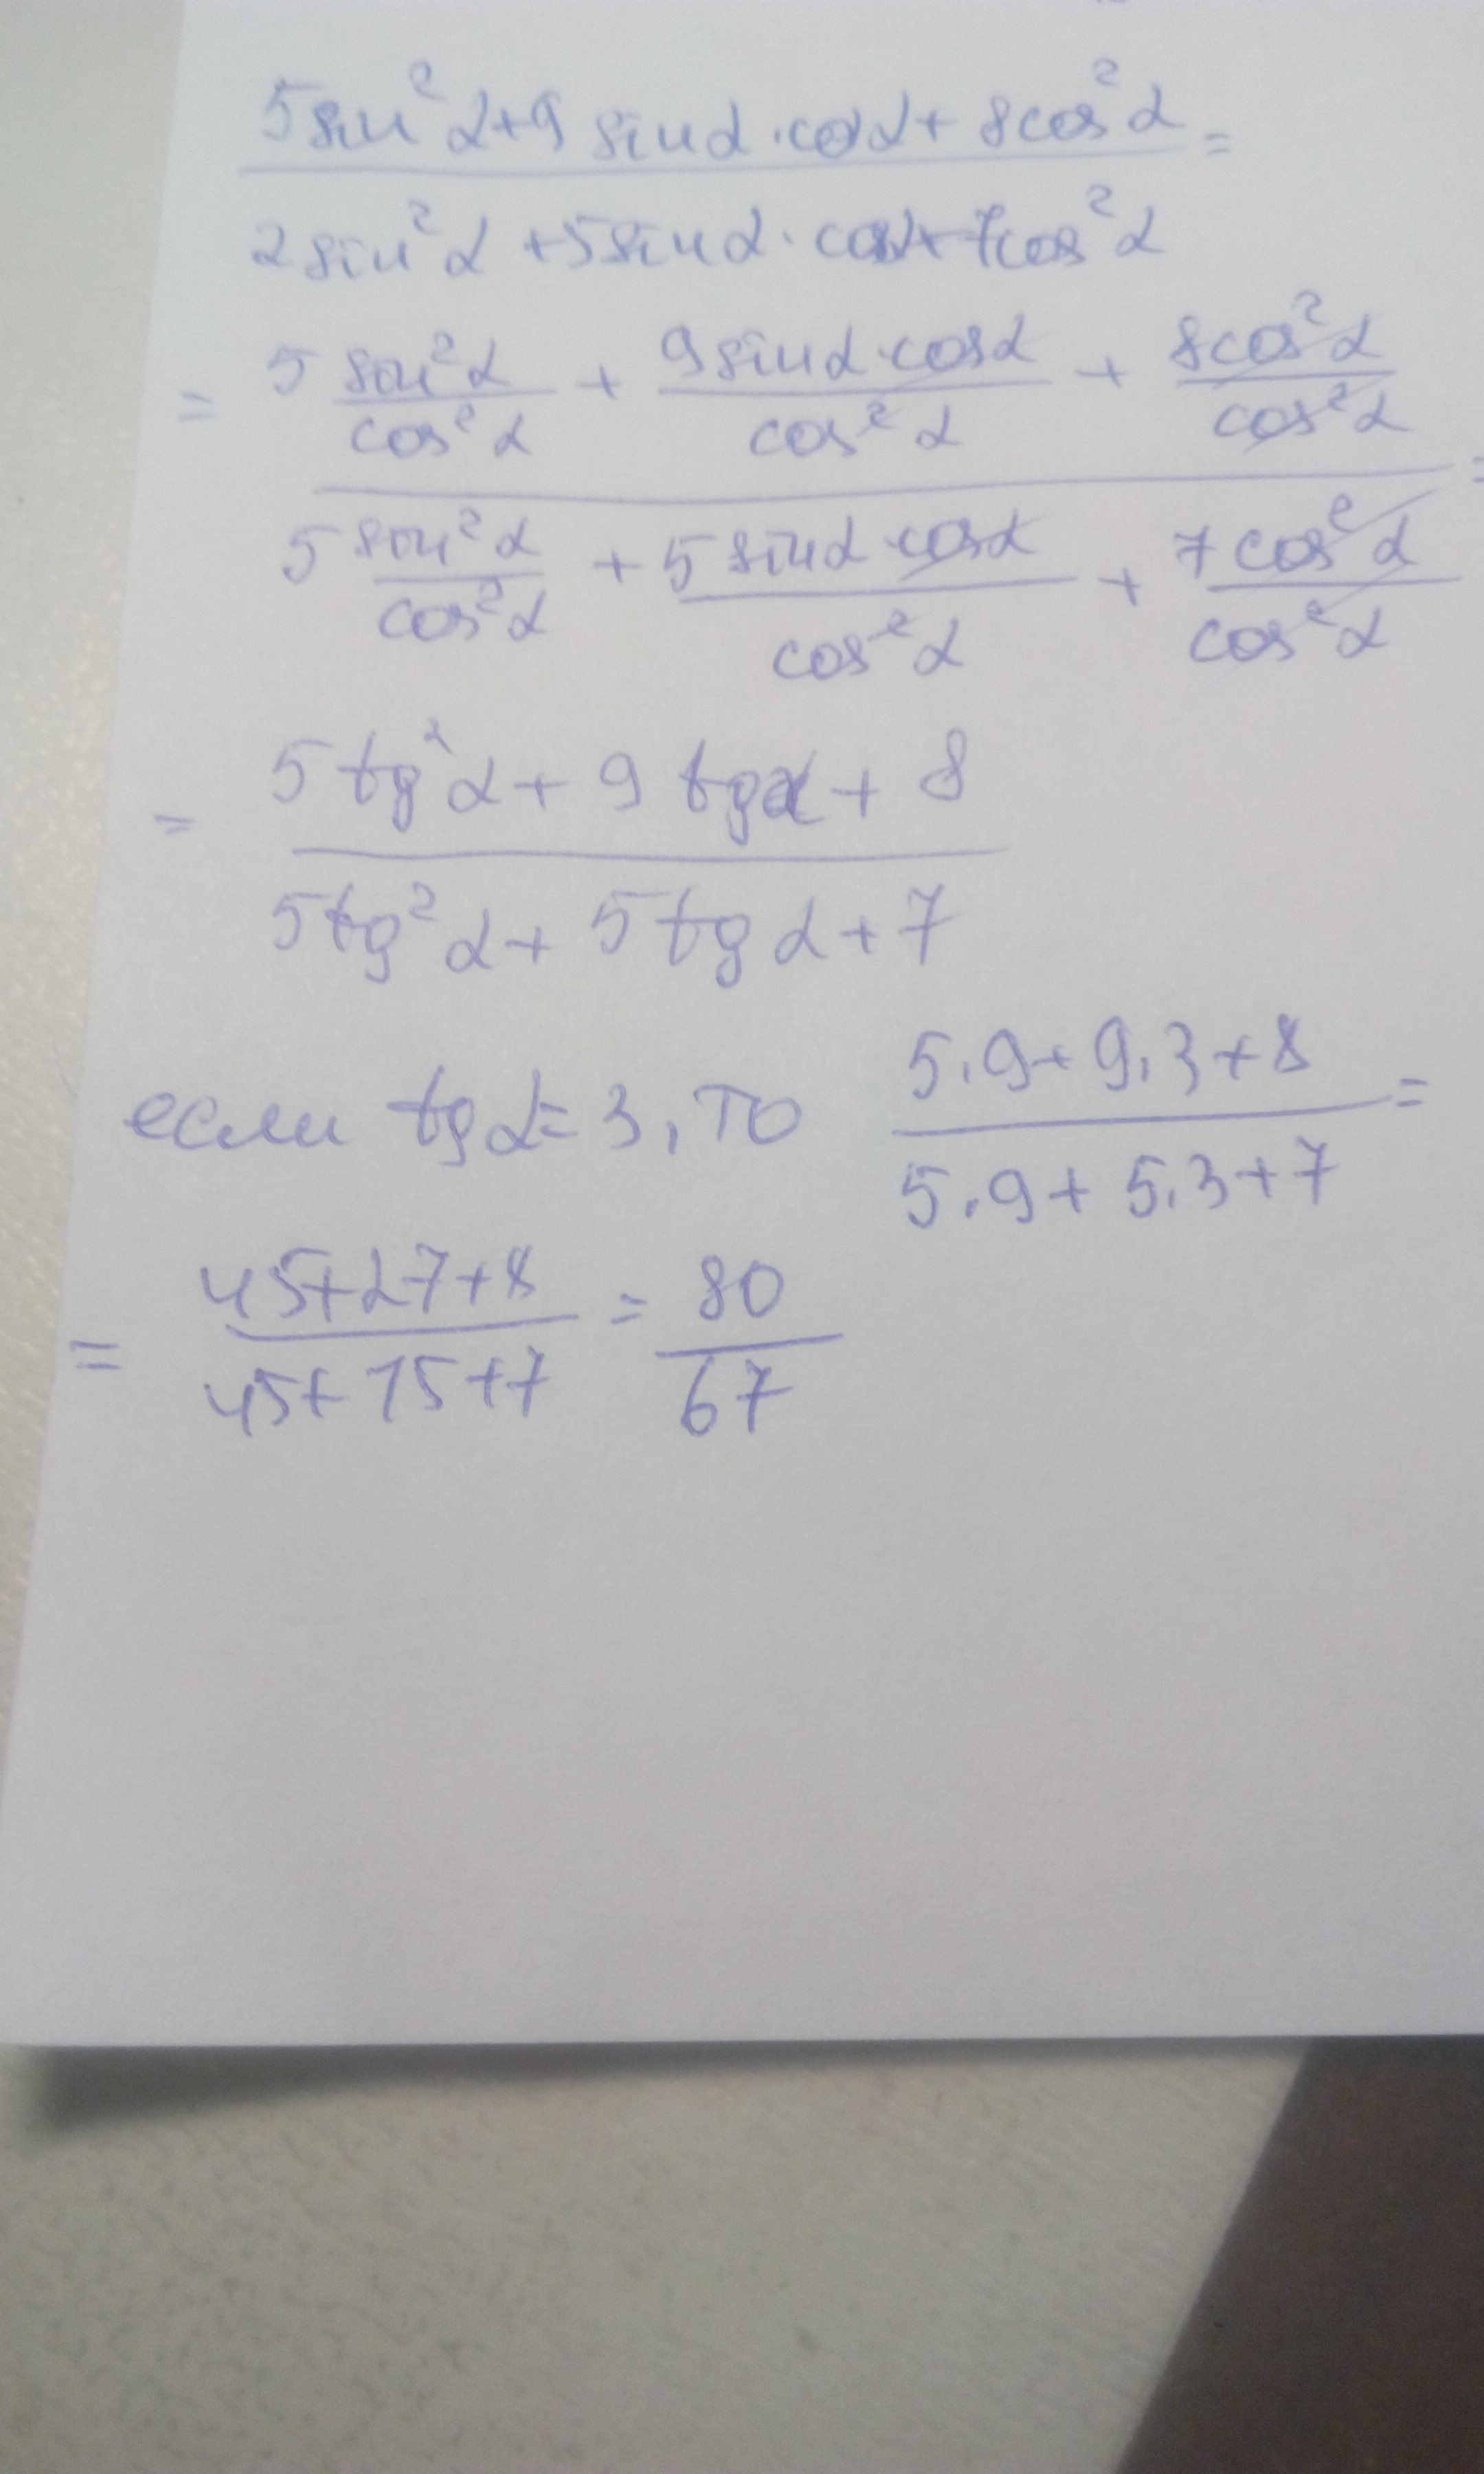 5sin²α+9sinα·cosα+8cos²α =
2sin²α+5sinα·cosα+7cos²α
= 5 sin²α/cos²α + 9sinα·cosα/cos²α + 8cos²α/cos²α
5 sin²α/cos²α + 5sinα·cosα/cos²α + 7cos²α/cos²α =
= 5tg²α + 9tgα + 8
5tg²α + 5tgα + 7
если tgα = 3, то 5·9+9·3+8 =
5·9+5·3+7
= 45+27+8 = 80
45+15+7 67